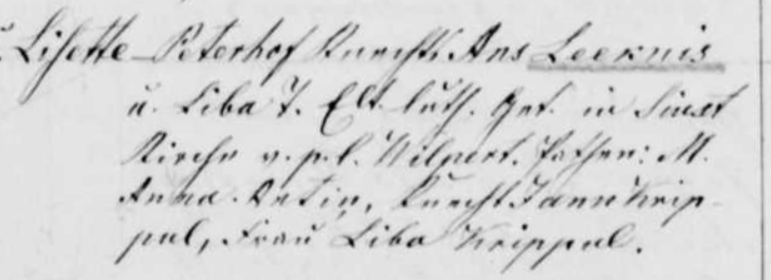 Lisette Peterhof Knechts Ans Leeknis
u. Liba T. Elt. luth. Get. in Siuxt
Kirche v. p. l. Wilpert. Pathen: M.
Anna Ansin, Knecht Jann Krip-
pal, Frau Liba Krippal.